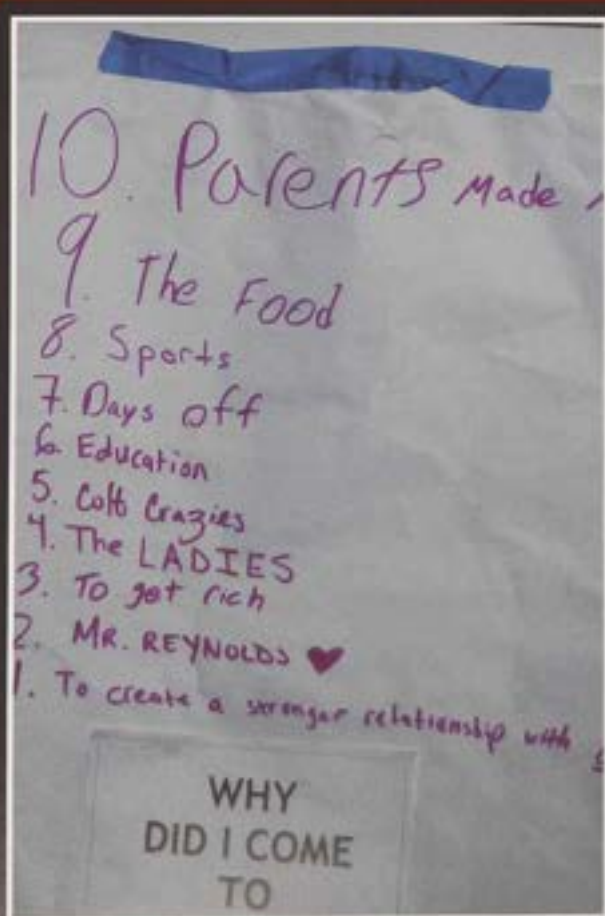 10. Parents Made
9. The Food
8. Sports
7. Days off
6. Education
5. Colt Crazies
4. The LADIES
3. To get rich
2. MR. REYNOLDS ♥
1. To create a stronger relationship with
WHY
DID I COME
TO